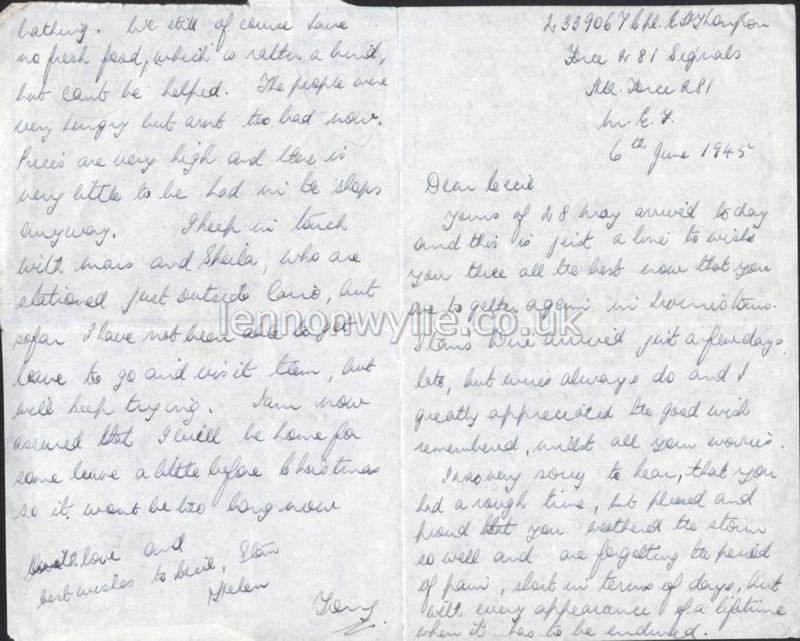 2339067 Cpl. E St Thompson
Force 281 Signals
HQ. Force 281
M. E. F.
6th June 1945
Dear Cecie
Yours of 28 May arrived today
and this is just a line to wish
you three all the best now that you
are together again in
wire arrived just a few days
late, but wires always do and I
greatly appreciated the good wish
remembered, midst all your worries.
I was very sorry to hear, that you
had a rough time, but pleased and
proud that you weathered the storm
so well and are forgetting the period
of pain, short in terms of days, but
with every appearance of a lifetime
when it has to be endured.
bathing. We still of course have
no fresh food, which is rather a bind,
but cant be helped. The people were
very hungry but arent too bad now.
Prices are very high and there is
very little to be had in the shops
anyway. I keep in touch
with and Sheila, who are
stationed just outside Cairo, but
sofar I have not been able to get
leave to go and visit them, but
will keep trying. I am now
assured that I will be home for
some leave a little before Christmas
so it wont be too long now
love and
best wishes to Cecil, Stan
Helen
Tony.
lennonwylie.co.uk